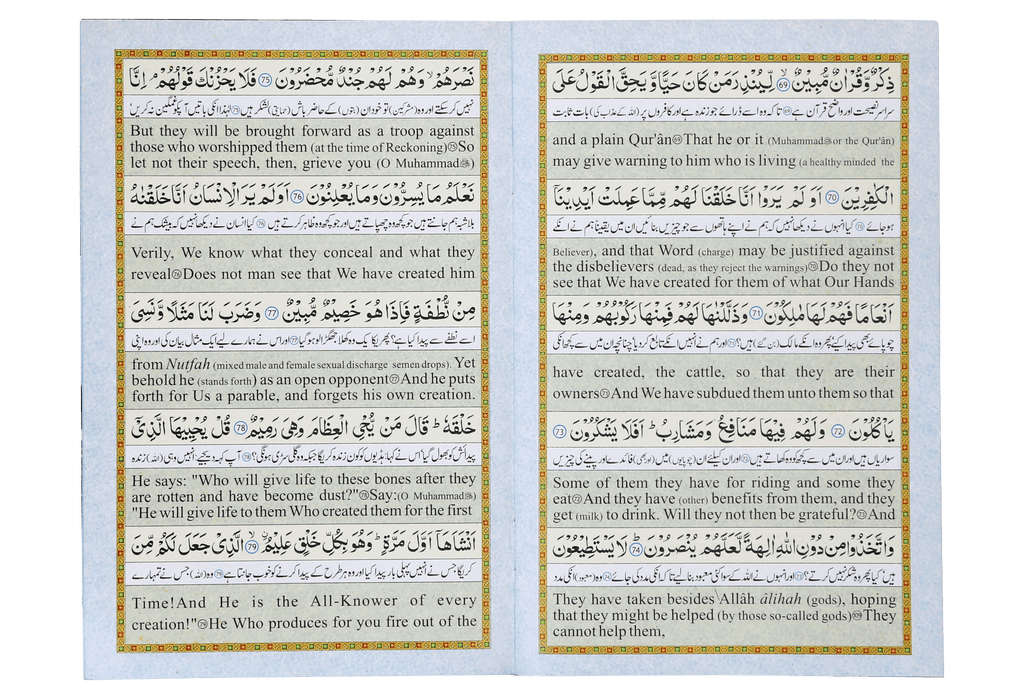 ذِكْرٌ وَّقُرْاٰنٌ مُّبِيْنٌ ۙ٦٩ لِّيُنْذِرَ مَنْ كَانَ حَيًّا وَّيَحِقَّ الْقَوْلُ عَلَى
سراسر نصیحت اور واضح قرآن ہے ٦٩ تاکہ وہ اسے ڈرائے جو زندہ ہے اور کافروں پر (اللہ کے عذاب کی) بات ثابت
and a plain Qur'ân 69 That he or it (Muhammad ﷺ or the Qur'ân)
may give warning to him who is living (a healthy minded the
الْكٰفِرِيْنَ ٧٠ اَوَلَمْ يَرَوْا اَنَّا خَلَقْنَا لَهُمْ مِّمَّا عَمِلَتْ اَيْدِيْنَآ
ہو جائے ٧٠ کیا انہوں نے دیکھا نہیں کہ ہم نے اپنے ہاتھوں سے جو چیزیں بنائیں ان میں یقیناً ہم نے انکے
Believer), and that Word (charge) may be justified against
the disbelievers (dead, as they reject the warnings) 70 Do they not
see that We have created for them of what Our Hands
اَنْعَامًا فَهُمْ لَهَا مٰلِكُوْنَ ٧١ وَذَلَّلْنٰهَا لَهُمْ فَمِنْهَا رَكُوْبُهُمْ وَمِنْهَا
چوپائے بھی پیدا کیے پھر وہ انکے مالک (بن گئے) ہیں؟ ٧١ اور ہم نے انہیں انکے تابع کر دیا چنانچہ ان میں سے کچھ انکی
have created, the cattle, so that they are their
owners 71 And We have subdued them unto them so that
يَاْكُلُوْنَ ٧٢ وَلَهُمْ فِيْهَا مَنَافِعُ وَمَشَارِبُ ؕ اَفَلَا يَشْكُرُوْنَ ٧٣
سواریاں ہیں اور ان میں سے کچھ کو وہ کھاتے ہیں ٧٢ اور ان کیلئے ان (چوپایوں) میں (اور بھی) فائدے اور پینے کی چیزیں
Some of them they have for riding and some they
eat 72 And they have (other) benefits from them, and they
get (milk) to drink. Will they not then be grateful? 73 And
وَاتَّخَذُوْا مِنْ دُوْنِ اللّٰهِ اٰلِهَةً لَّعَلَّهُمْ يُنْصَرُوْنَ ؕ ٧٤ لَا يَسْتَطِيْعُوْنَ
ہیں کیا پھر وہ شکر نہیں کرتے؟ ٧٣ اور انہوں نے اللہ کے سوا کئی معبود بنا لیے تاکہ انکی مدد کی جائے ٧٤ وہ (معبود) انکی مدد
They have taken besides Allâh âlihah (gods), hoping
that they might be helped (by those so-called gods) 74 They
cannot help them,
نَصْرَهُمْ ۙ وَهُمْ لَهُمْ جُنْدٌ مُّحْضَرُوْنَ ٧٥ فَلَا يَحْزُنْكَ قَوْلُهُمْ ۘ اِنَّا
نہیں کر سکتے اور وہ (مشرکین) تو خود ان (بتوں) کے حاضر باش (حمایتی) لشکر ہیں ٧٥ لہٰذا انکی باتیں آپکو غمگین نہ کریں
But they will be brought forward as a troop against
those who worshipped them (at the time of Reckoning) 75 So
let not their speech, then, grieve you (O Muhammad ﷺ)
نَعْلَمُ مَا يُسِرُّوْنَ وَمَا يُعْلِنُوْنَ ٧٦ اَوَلَمْ يَرَ الْاِنْسَانُ اَنَّا خَلَقْنٰهُ
بلاشبہ ہم جانتے ہیں جو کچھ وہ چھپاتے ہیں اور جو کچھ وہ ظاہر کرتے ہیں ٧٦ کیا انسان نے دیکھا نہیں کہ بیشک ہم نے
Verily, We know what they conceal and what they
reveal 76 Does not man see that We have created him
مِنْ نُّطْفَةٍ فَاِذَا هُوَ خَصِيْمٌ مُّبِيْنٌ ٧٧ وَضَرَبَ لَنَا مَثَلًا وَّنَسِيَ
اسے نطفے سے پیدا کیا ہے؟ پھر یکایک وہ کھلا جھگڑالو ہو گیا ٧٧ اور اس نے ہمارے لیے ایک مثال بیان کی اور وہ اپنی
from Nutfah (mixed male and female sexual discharge semen drops). Yet
behold he (stands forth) as an open opponent 77 And he puts
forth for Us a parable, and forgets his own creation.
خَلْقَهٗ ؕ قَالَ مَنْ يُّحْيِ الْعِظَامَ وَهِيَ رَمِيْمٌ ٧٨ قُلْ يُحْيِيْهَا الَّذِيْٓ
پیدائش کو بھول گیا اس نے کہا: ہڈیوں کو کون زندہ کریگا جبکہ وہ گلی سڑی ہونگی؟ ٧٨ آپ کہہ دیجیے: انہیں وہی (اللہ) زندہ
He says: "Who will give life to these bones after they
are rotten and have become dust?" 78 Say:(O Muhammad ﷺ)
"He will give life to them Who created them for the first
اَنْشَاَهَآ اَوَّلَ مَرَّةٍ ؕ وَهُوَ بِكُلِّ خَلْقٍ عَلِيْمُ ۙ ٧٩ الَّذِيْ جَعَلَ لَكُمْ مِّنَ
کریگا جس نے انہیں پہلی بار پیدا کیا اور وہ ہر طرح کے پیدا کرنے کو خوب جانتا ہے ٧٩ وہ (اللہ) جس نے تمہارے
Time!And He is the All-Knower of every
creation!" 79 He Who produces for you fire out of the